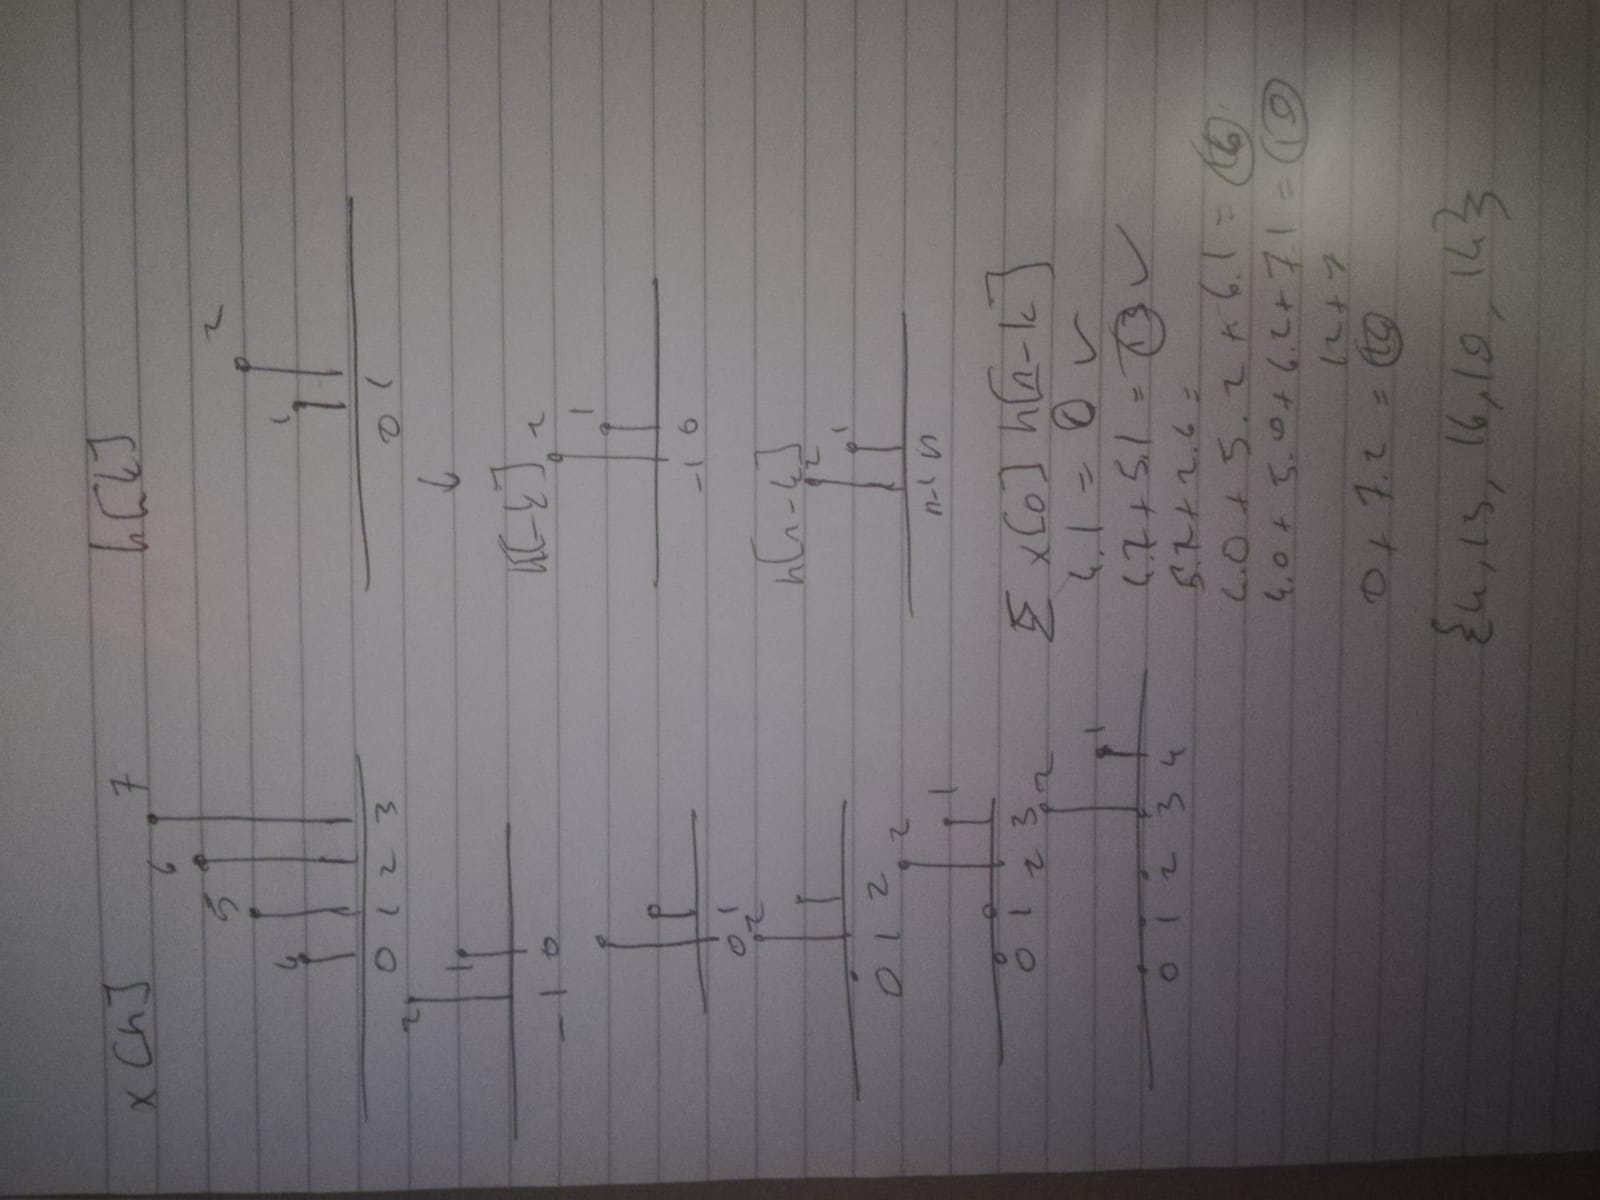 x[n]
4 5 6 7
0 1 2 3
2 1
-1 0
0 1
2
0 1 2
2 1
0 1 2 3
2 1
0 1 2 3 4
h[k]
1 2
0 1
↓
h[-k]
2 1
-1 0
h[n-k]
2 1
n-1 n
Σ x[0] h[n-k]
4.1 = 4 ✓
4.2 + 5.1 = 13 ✓
5.2 + 2.6 =
4.0 + 5.2 + 6.1 = 16
4.0 + 5.0 + 6.2 + 7.1 = 19
12 + 7
0 + 7.2 = 14
{4, 13, 16, 19, 14}